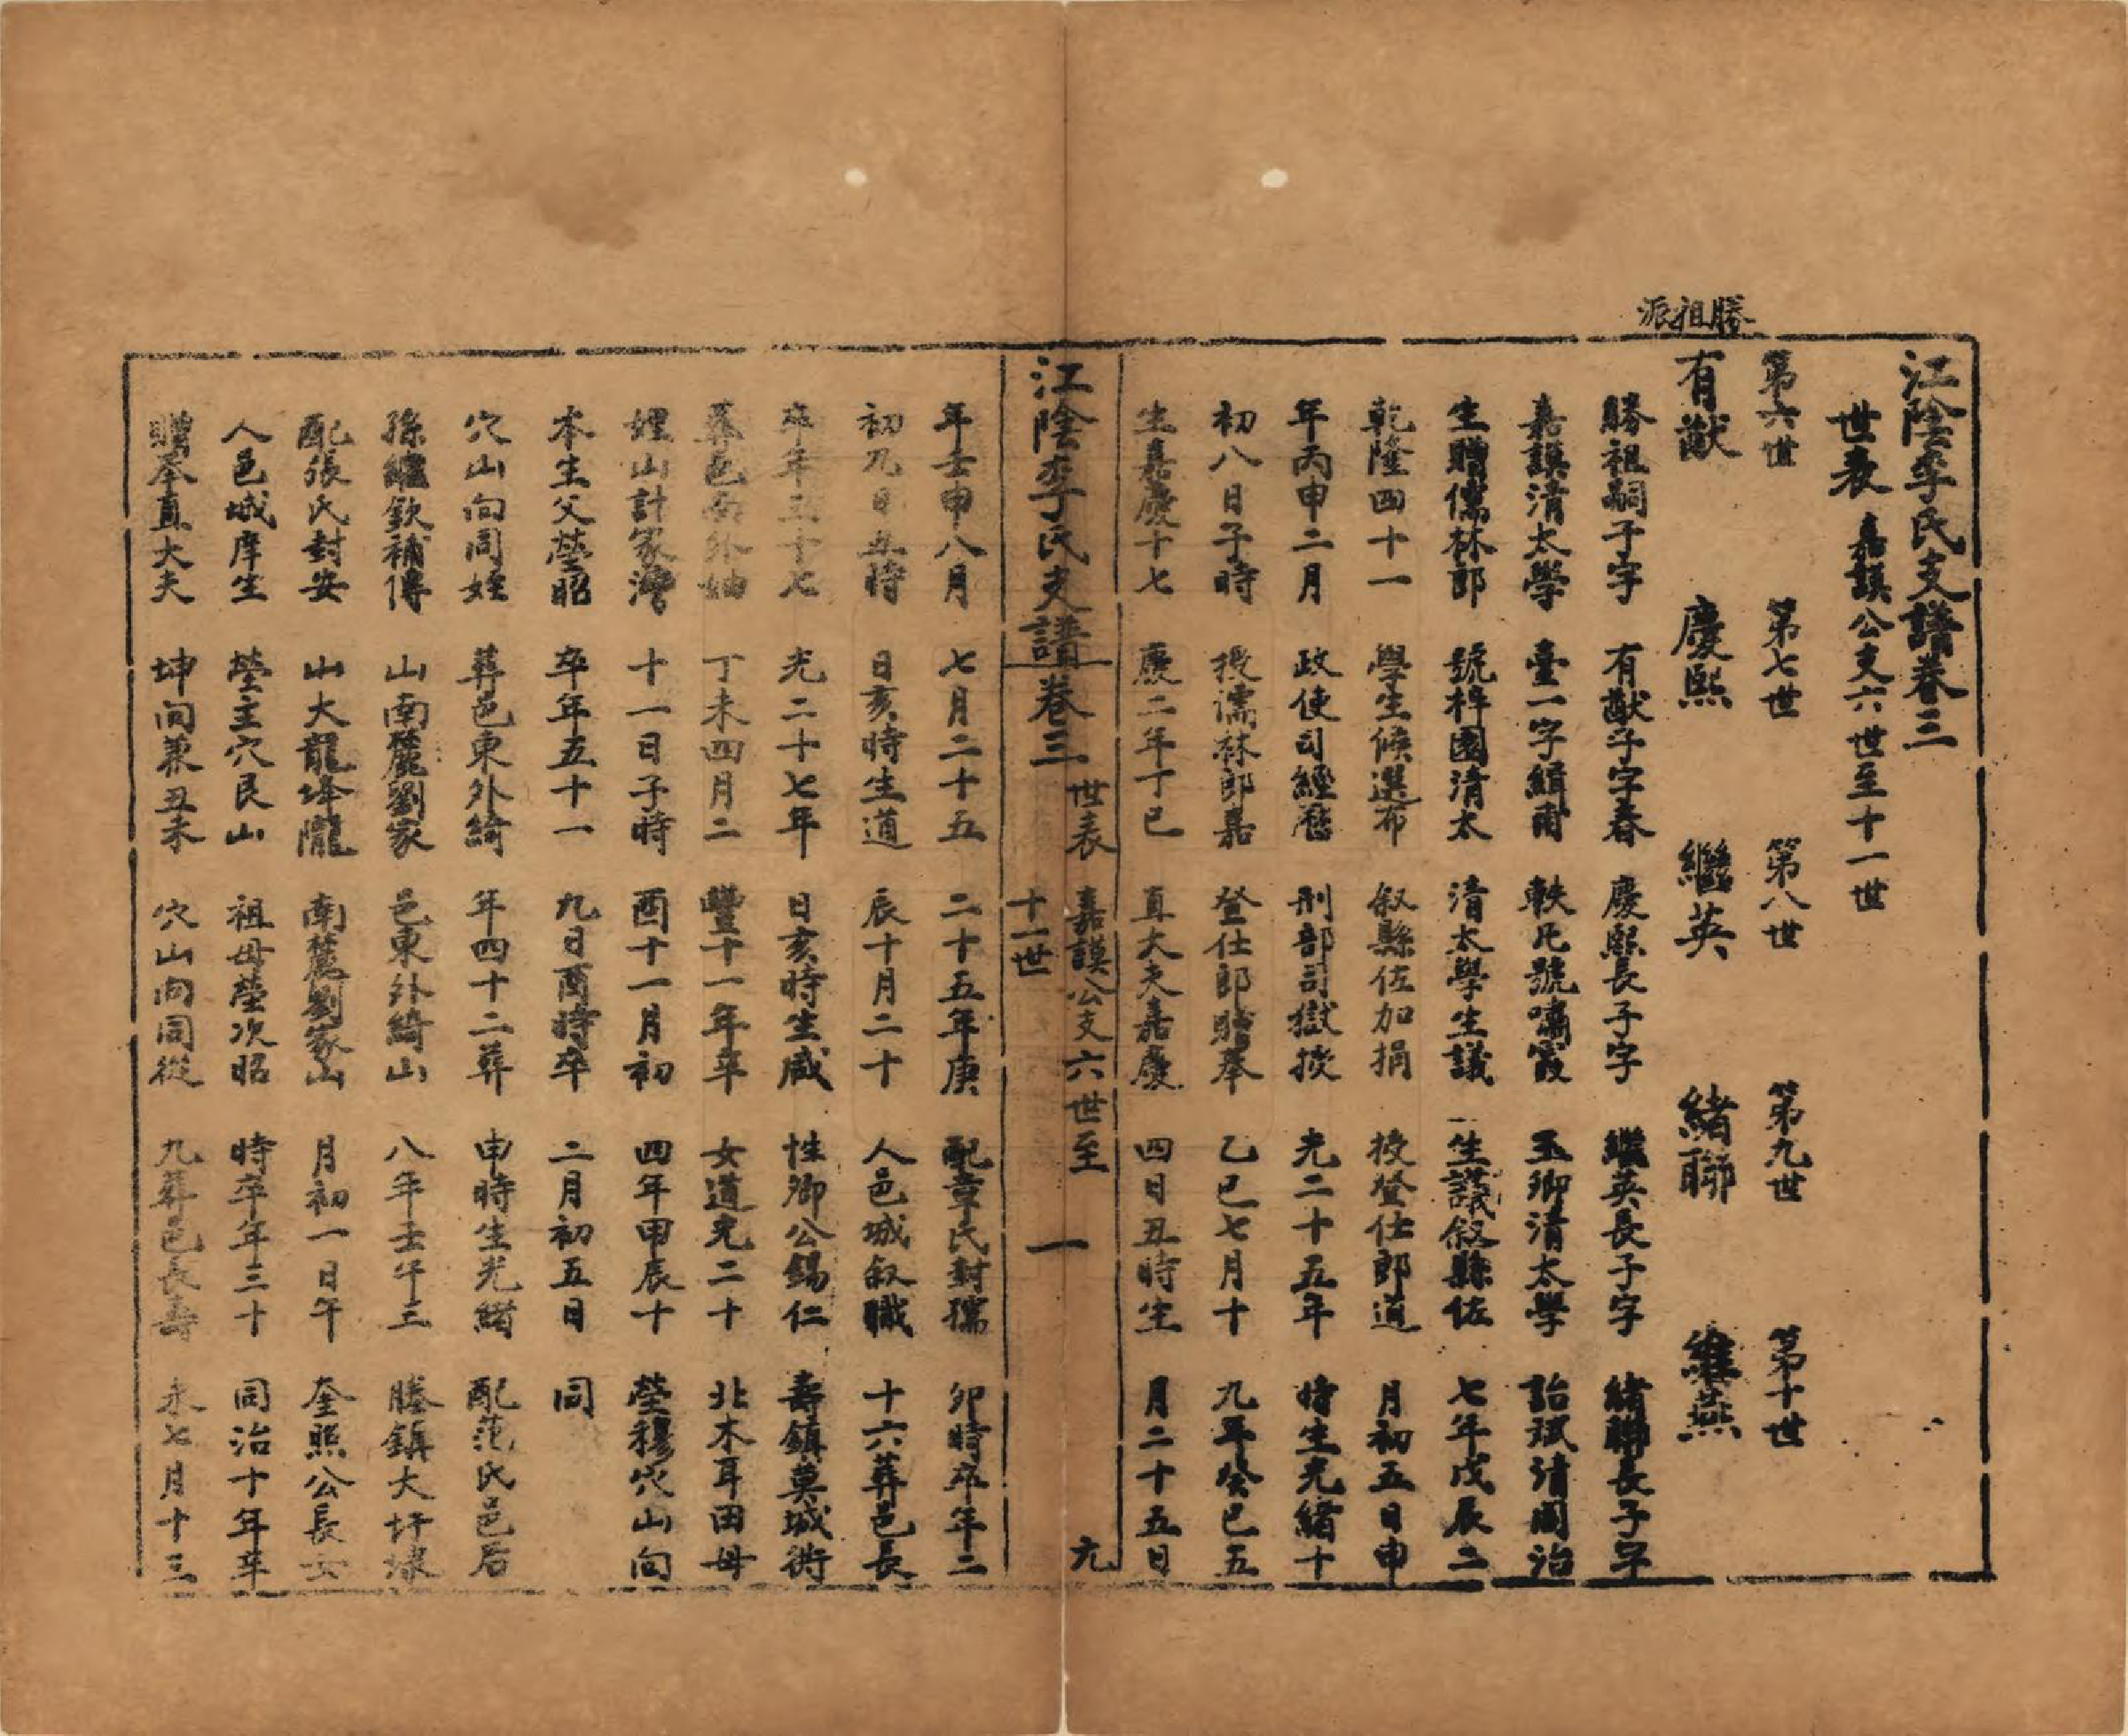 勝祖派
江陰李氏支譜卷三
世表 嘉謨公支六世至十一世
第六世 第七世 第八世 第九世 第十世
有猷 慶熙 繼英 緒聯 維燕
勝祖嗣子字 有猷子字春 慶熙長子字 繼英長子字 緒聯長子字
嘉謨清太學 臺一字緝甫 軼凡號嘯霞 玉卿清太學 詒珷清同治
生贈儒林郎 號梓園清太 清太學生議 生議叙縣佐 七年戊辰二
乾隆四十一 學生候選布 叙縣佐加捐 授登仕郎道 月初五日申
年丙申二月 政使司經歷 刑部司獄授 光二十五年 時生光緒十
初八日子時 授儒林郎嘉 登仕郎贈奉 乙巳七月十 九年癸巳五
生嘉慶十七 慶二年丁巳 直大夫嘉慶 四日丑時生 月二十五日
江陰李氏支譜卷三 世表 嘉謨公支六世至十一世 一 元
年壬申八月 七月二十五 二十五年庚 配章氏封孺 卯時卒年二
初九日丑時 日亥時生道 辰十月二十 人邑城叙職 十六葬邑長
卒年三十七 光二十七年 日亥時生咸 性卿公錫仁 壽鎮莫城街
葬邑南外妯 丁未四月二 豐十一年辛 女道光二十 北木耳田母
娌山計家灣 十一日子時 酉十一月初 四年甲辰十 塋穆穴山向
本生父塋昭 卒年五十一 九日酉時卒 二月初五日 同
穴山向同姪 葬邑東外綺 年四十二葬 申時生光緒 配范氏邑后
孫繼欽補傳 山南麓劉家 邑東外綺山 八年壬午三 塍鎮大圩埭
配張氏封安 山大龍埄隴 南麓劉家山 月初一日午 奎熙公長女
人邑城庠生 塋主穴艮山 祖母塋次昭 時卒年三十 同治十年辛
贈奉直大夫 坤向兼丑未 穴山向同從 九葬邑長壽 未七月十三